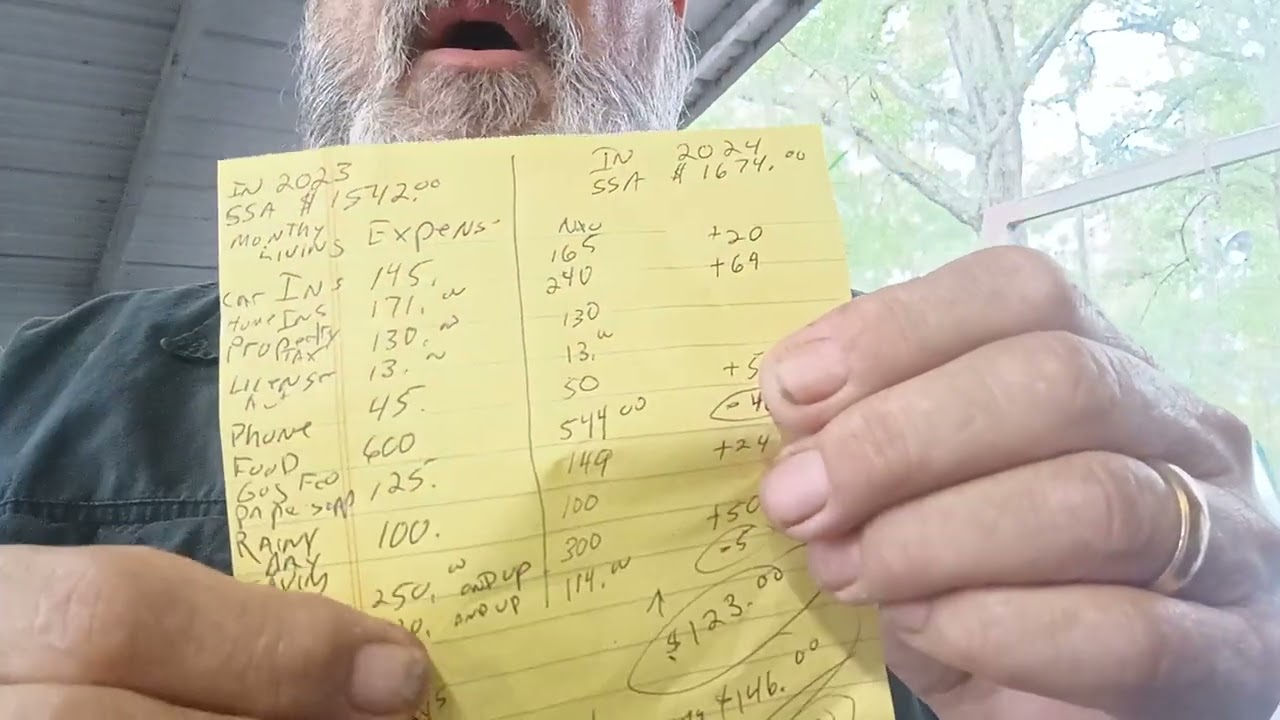 IN 2023
SSA $1542.00
MONTHY
LIVING Expens
CAR INS 145.
HOME INS 171.00
PROPERTY TAX 130.00
LICENSE 13.00
PHONE 45.
FOOD 600
GAS FOO 125.
RAINY DAY 100.
250.00 AND UP
AND UP
IN 2024
SSA $1674.00
165 +20
240 +69
130
13.00
50 +5
544 00
149 +24
100
300 +50
114.00 -5
$123.00
+146.00